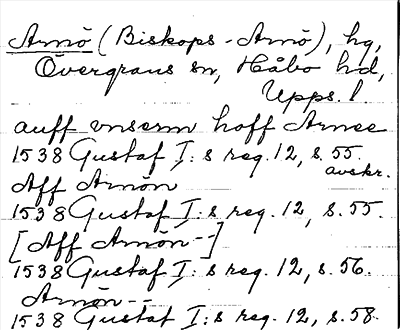 Arnö (Biskops-Arnö), hg,
Övergrans sn, Håbo hd,
Upps. l
auff vnserm hoff Arnee
1538 Gustaf I:s reg. 12, s. 55.
avskr.
Aff Arnön
1538 Gustaf I:s reg. 12, s. 55.
[Aff Arnön--]
1538 Gustaf I:s reg. 12, s. 56.
Arnön--
1538 Gustaf I:s reg. 12, s. 58.